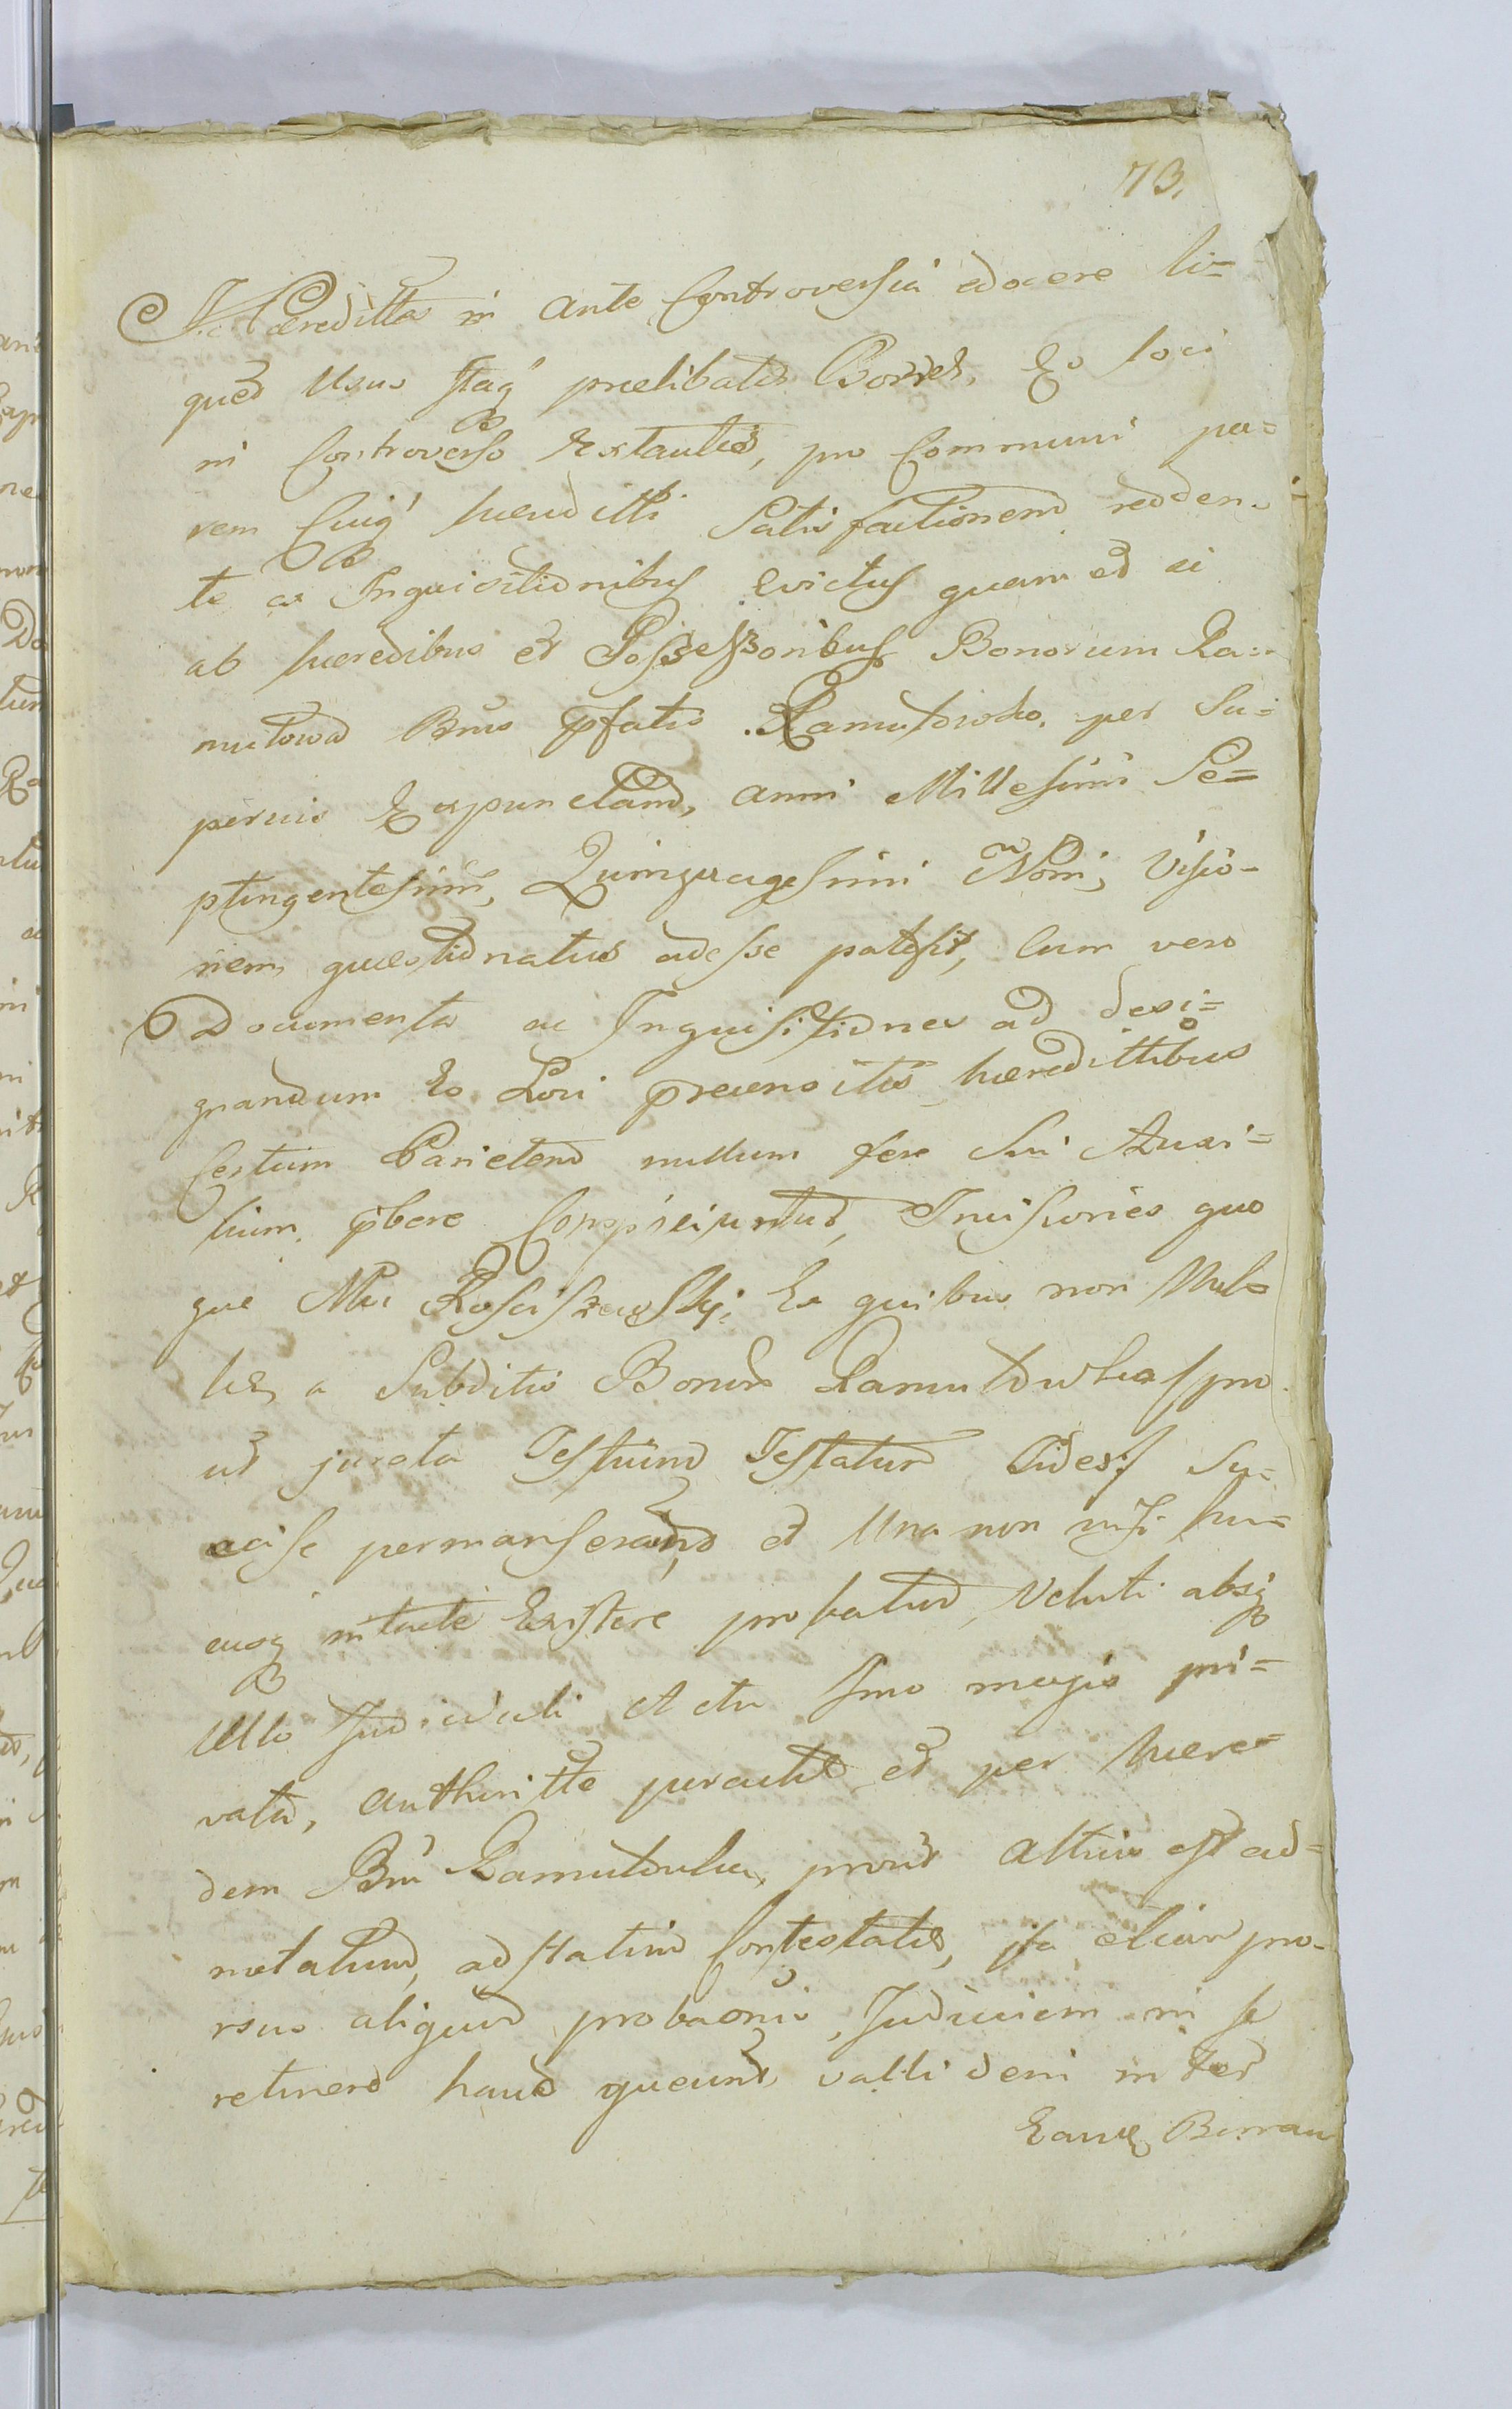 73.
Hæreditta in ante Controversia edocere li-
qued Usus stagq prælibatis Borres, Eo loci
in Controverso Extantis, pro Communi pa-
rem Cuiq hæreditti Satisfactionem redden-
te ex Inquisitionibus evictus quam et ei
ab hæredibus et Possessoribus Bonorum Ra-
mutowa Bnis pfatis Ramutowko, per Su-
perius Expunctam, anni Millesimi Se-
ptingentesimi, Quinquagesimi Noni, Visio-
nem, quæstionatus adesse patefit, Cum vero
Documenta ac Inquisitiones ad desi-
gnandum Eo Loci prænositis hæredittibus
Certum Parietem nullum fere Sui Auxi-
lium, pbere Conspiciuntur, Incisiones quo
que Mci Rosciszewski, Ex quibus non Mul-
tæ, a Subditis Bonorum Ramutowka, pro
ut juxta Testium Testatur Fides
 permanserand, et Una non nisi hu-
cusq intacte Existere probatur, Veluti absq
Ullo Judiciali Actu Imo magis pri-
vata, authoritte peractæ et per hære-
dem Bni Ramutowka, prout altius est ad-
notatum, ad statim Contestatæ, ita etiam pro-
rsus aliquid probaonis, Judiciem in se
retinere haud queunt, validem inter
Earum Bonam